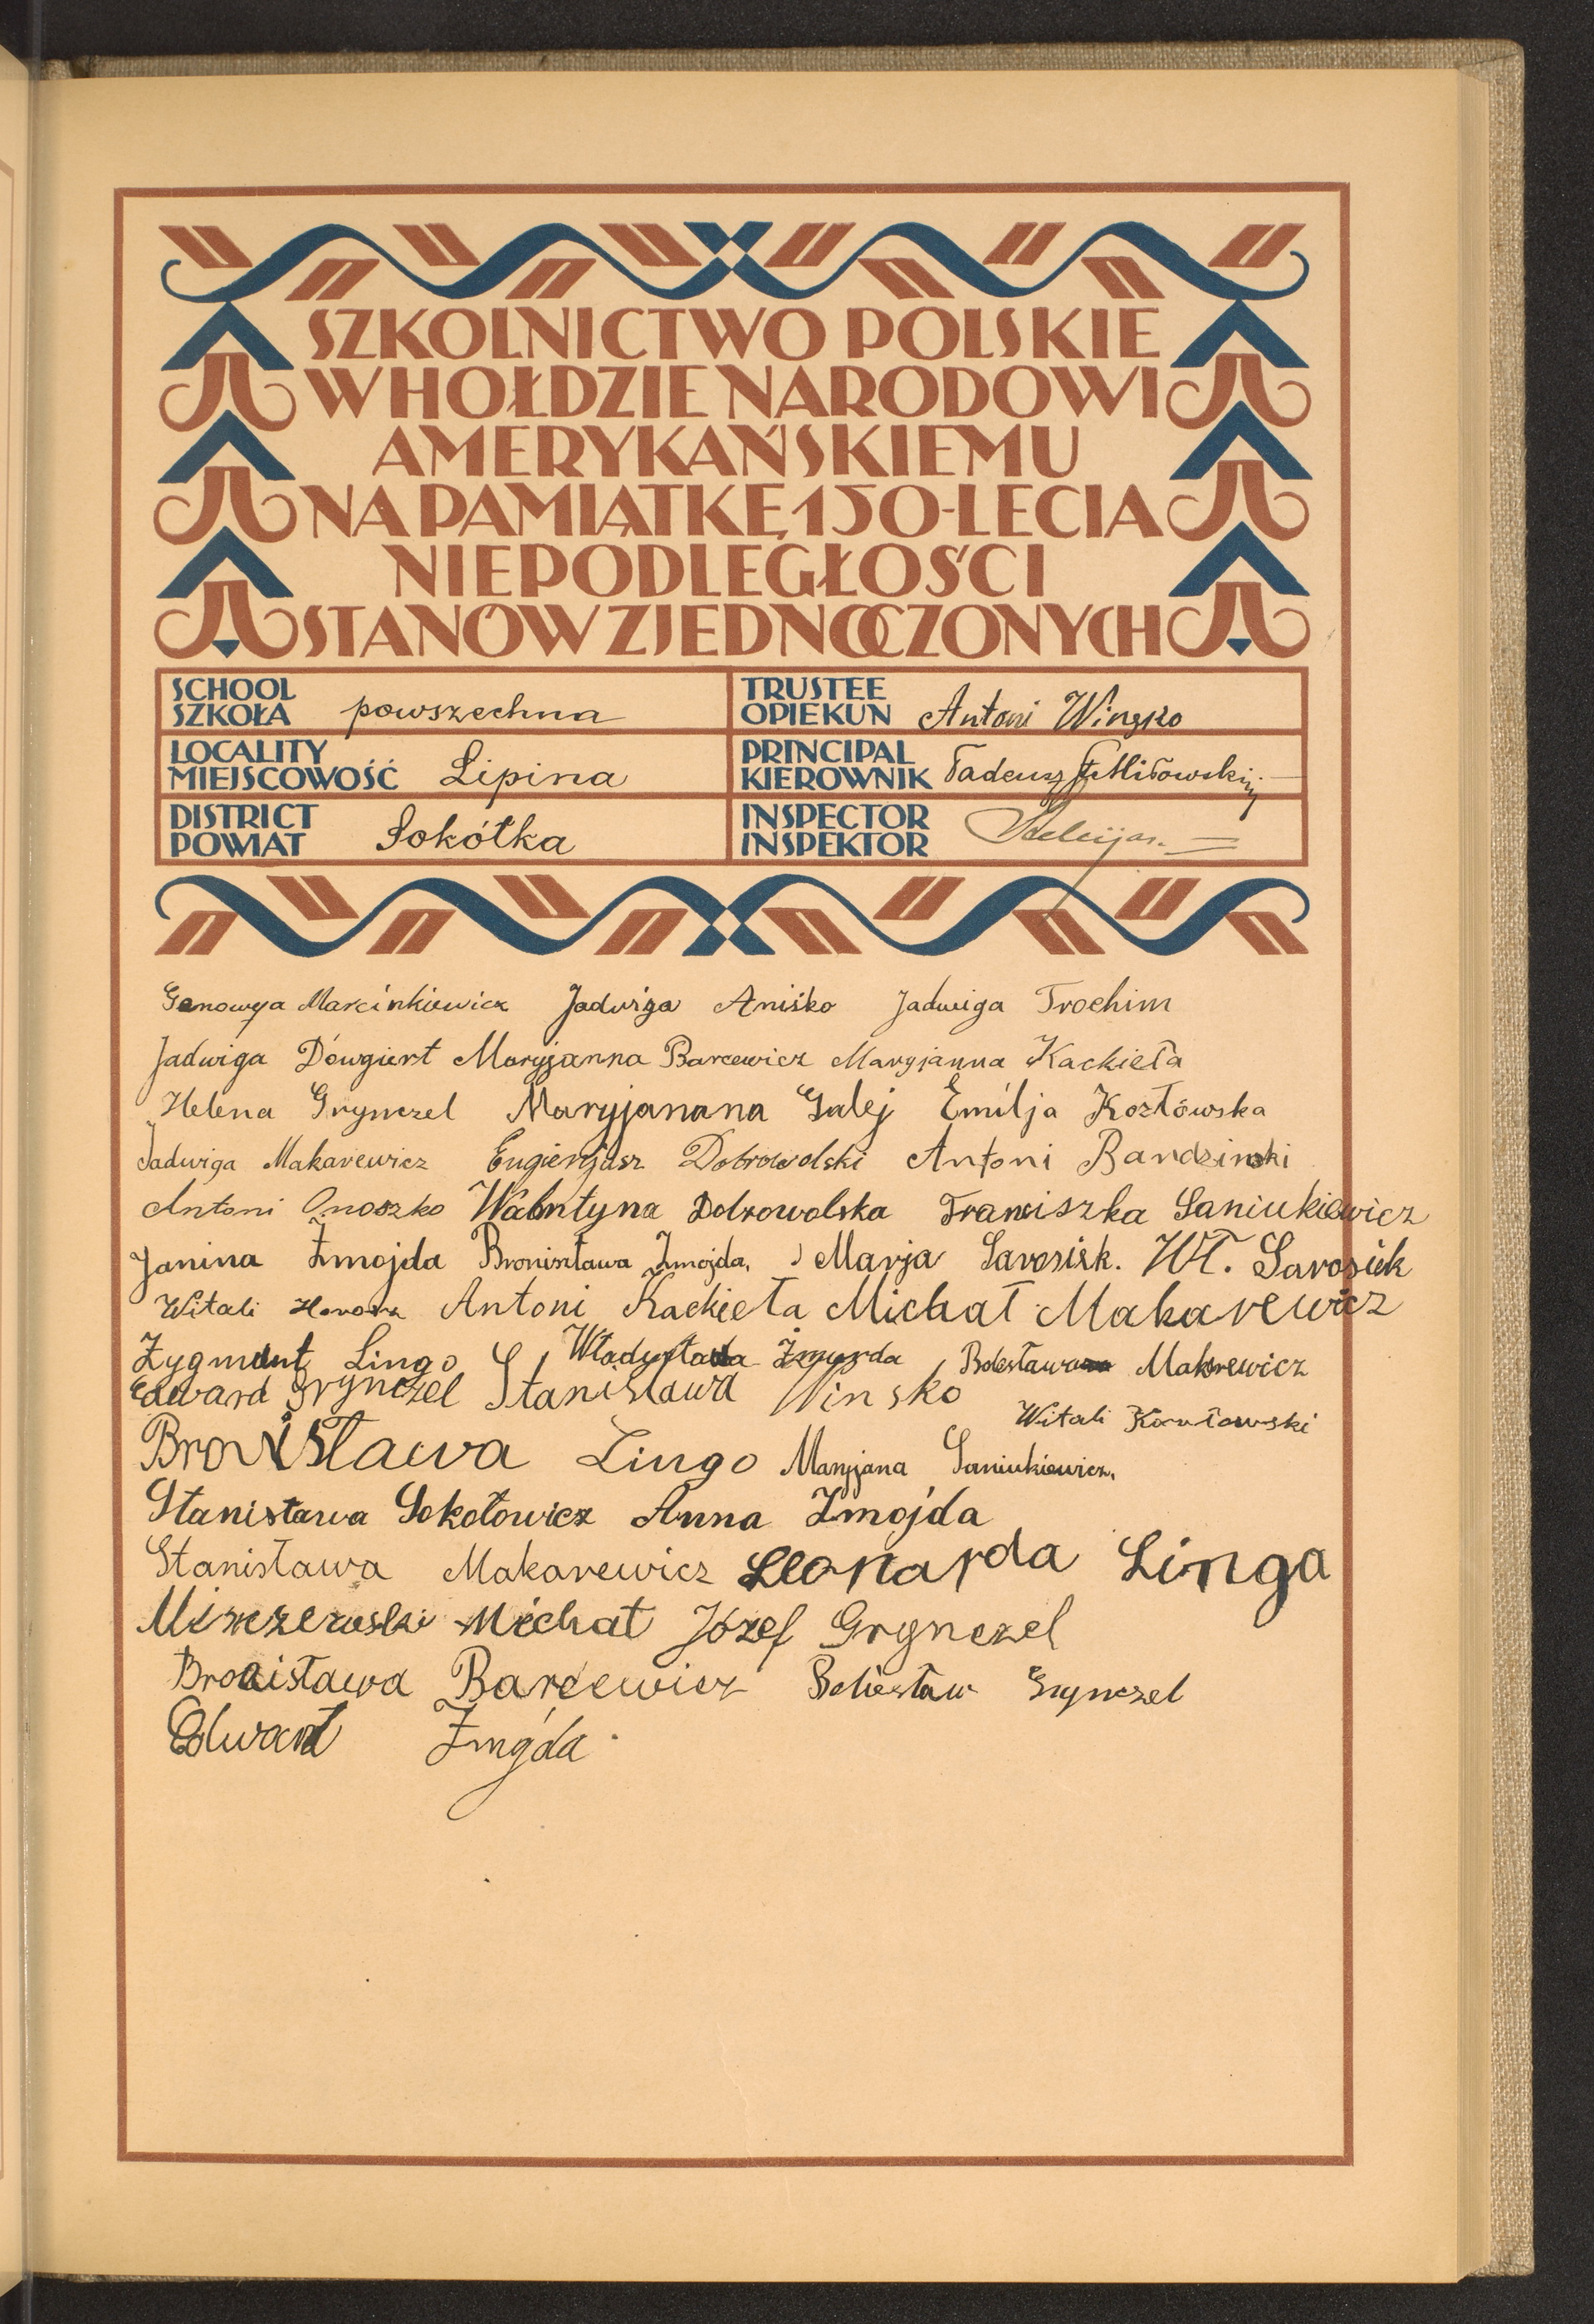 SZKOLNICTWO POLSKIE
W HOŁDZIE NARODOWI
AMERYKAŃSKIEMU
NA PAMIĄTKĘ 150-LECIA
NIEPODLEGŁOŚCI
STANÓW ZJEDNOCZONYCH
SCHOOL
SZKOŁA powszechna
TRUSTEE
OPIEKUN Antoni Winsko
LOCALITY
MIEJSCOWOŚĆ Lipina
PRINCIPAL
KIEROWNIK Tadeusz Miłowski
DISTRICT
POWIAT Sokółka
INSPECTOR
INSPEKTOR
Genowefa Marcinkiewicz Jadwiga Aniśko Jadwiga Trochim
Jadwiga Dowgiert Maryjanna Barcewicz Maryjanna Kackieła
Helena Grynczel Maryjanana Galej Emilja Kozłowska
Jadwiga Makarewicz Eugienjusz Dobrowolski Antoni Bandzinski
Antoni Onoszko Walntyna Dobrowolska Franciszka Saniukiewicz
Janina Żmojda Bronisława Żmojda, Marja Sarosiek. Wł. Sarosiek
Witali Antoni Kackieła Michał Makarewicz
Zygmunt Lingo Władysława Żmojda Bolesława Makrewicz
Edward Grynczel Stanisława Winsko
Witali Kozłowski
Bronisława Lingo Maryjana Saniukiewicz,
Stanisława Sokołowicz Anna Żmojda
Stanisława Makarewicz Leonarda Linga
Michał Józef Grynczel
Bronisława Barcewicz Bolesław Grynczel
Edward Żmojda